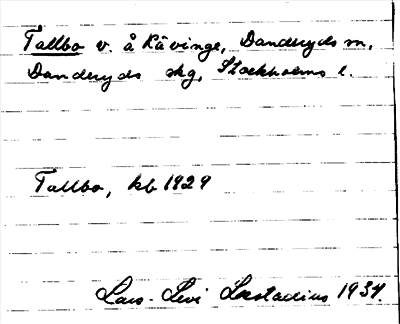 Tallbo v. å Rävinge, Danderyds sn,
Danderyds skg, Stockholms l.
Tallbo, kb 1929
Lars-Levi Læstadius 1934.